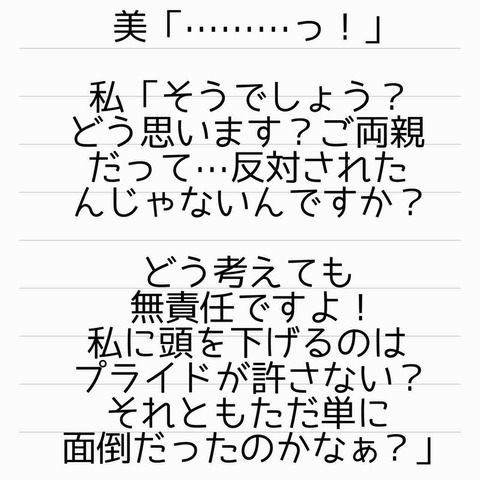 美「………っ！」
私「そうでしょう？
どう思います？ご両親
だって…反対された
んじゃないんですか？
どう考えても
無責任ですよ！
私に頭を下げるのは
プライドが許さない？
それともただ単に
面倒だったのかなぁ？」